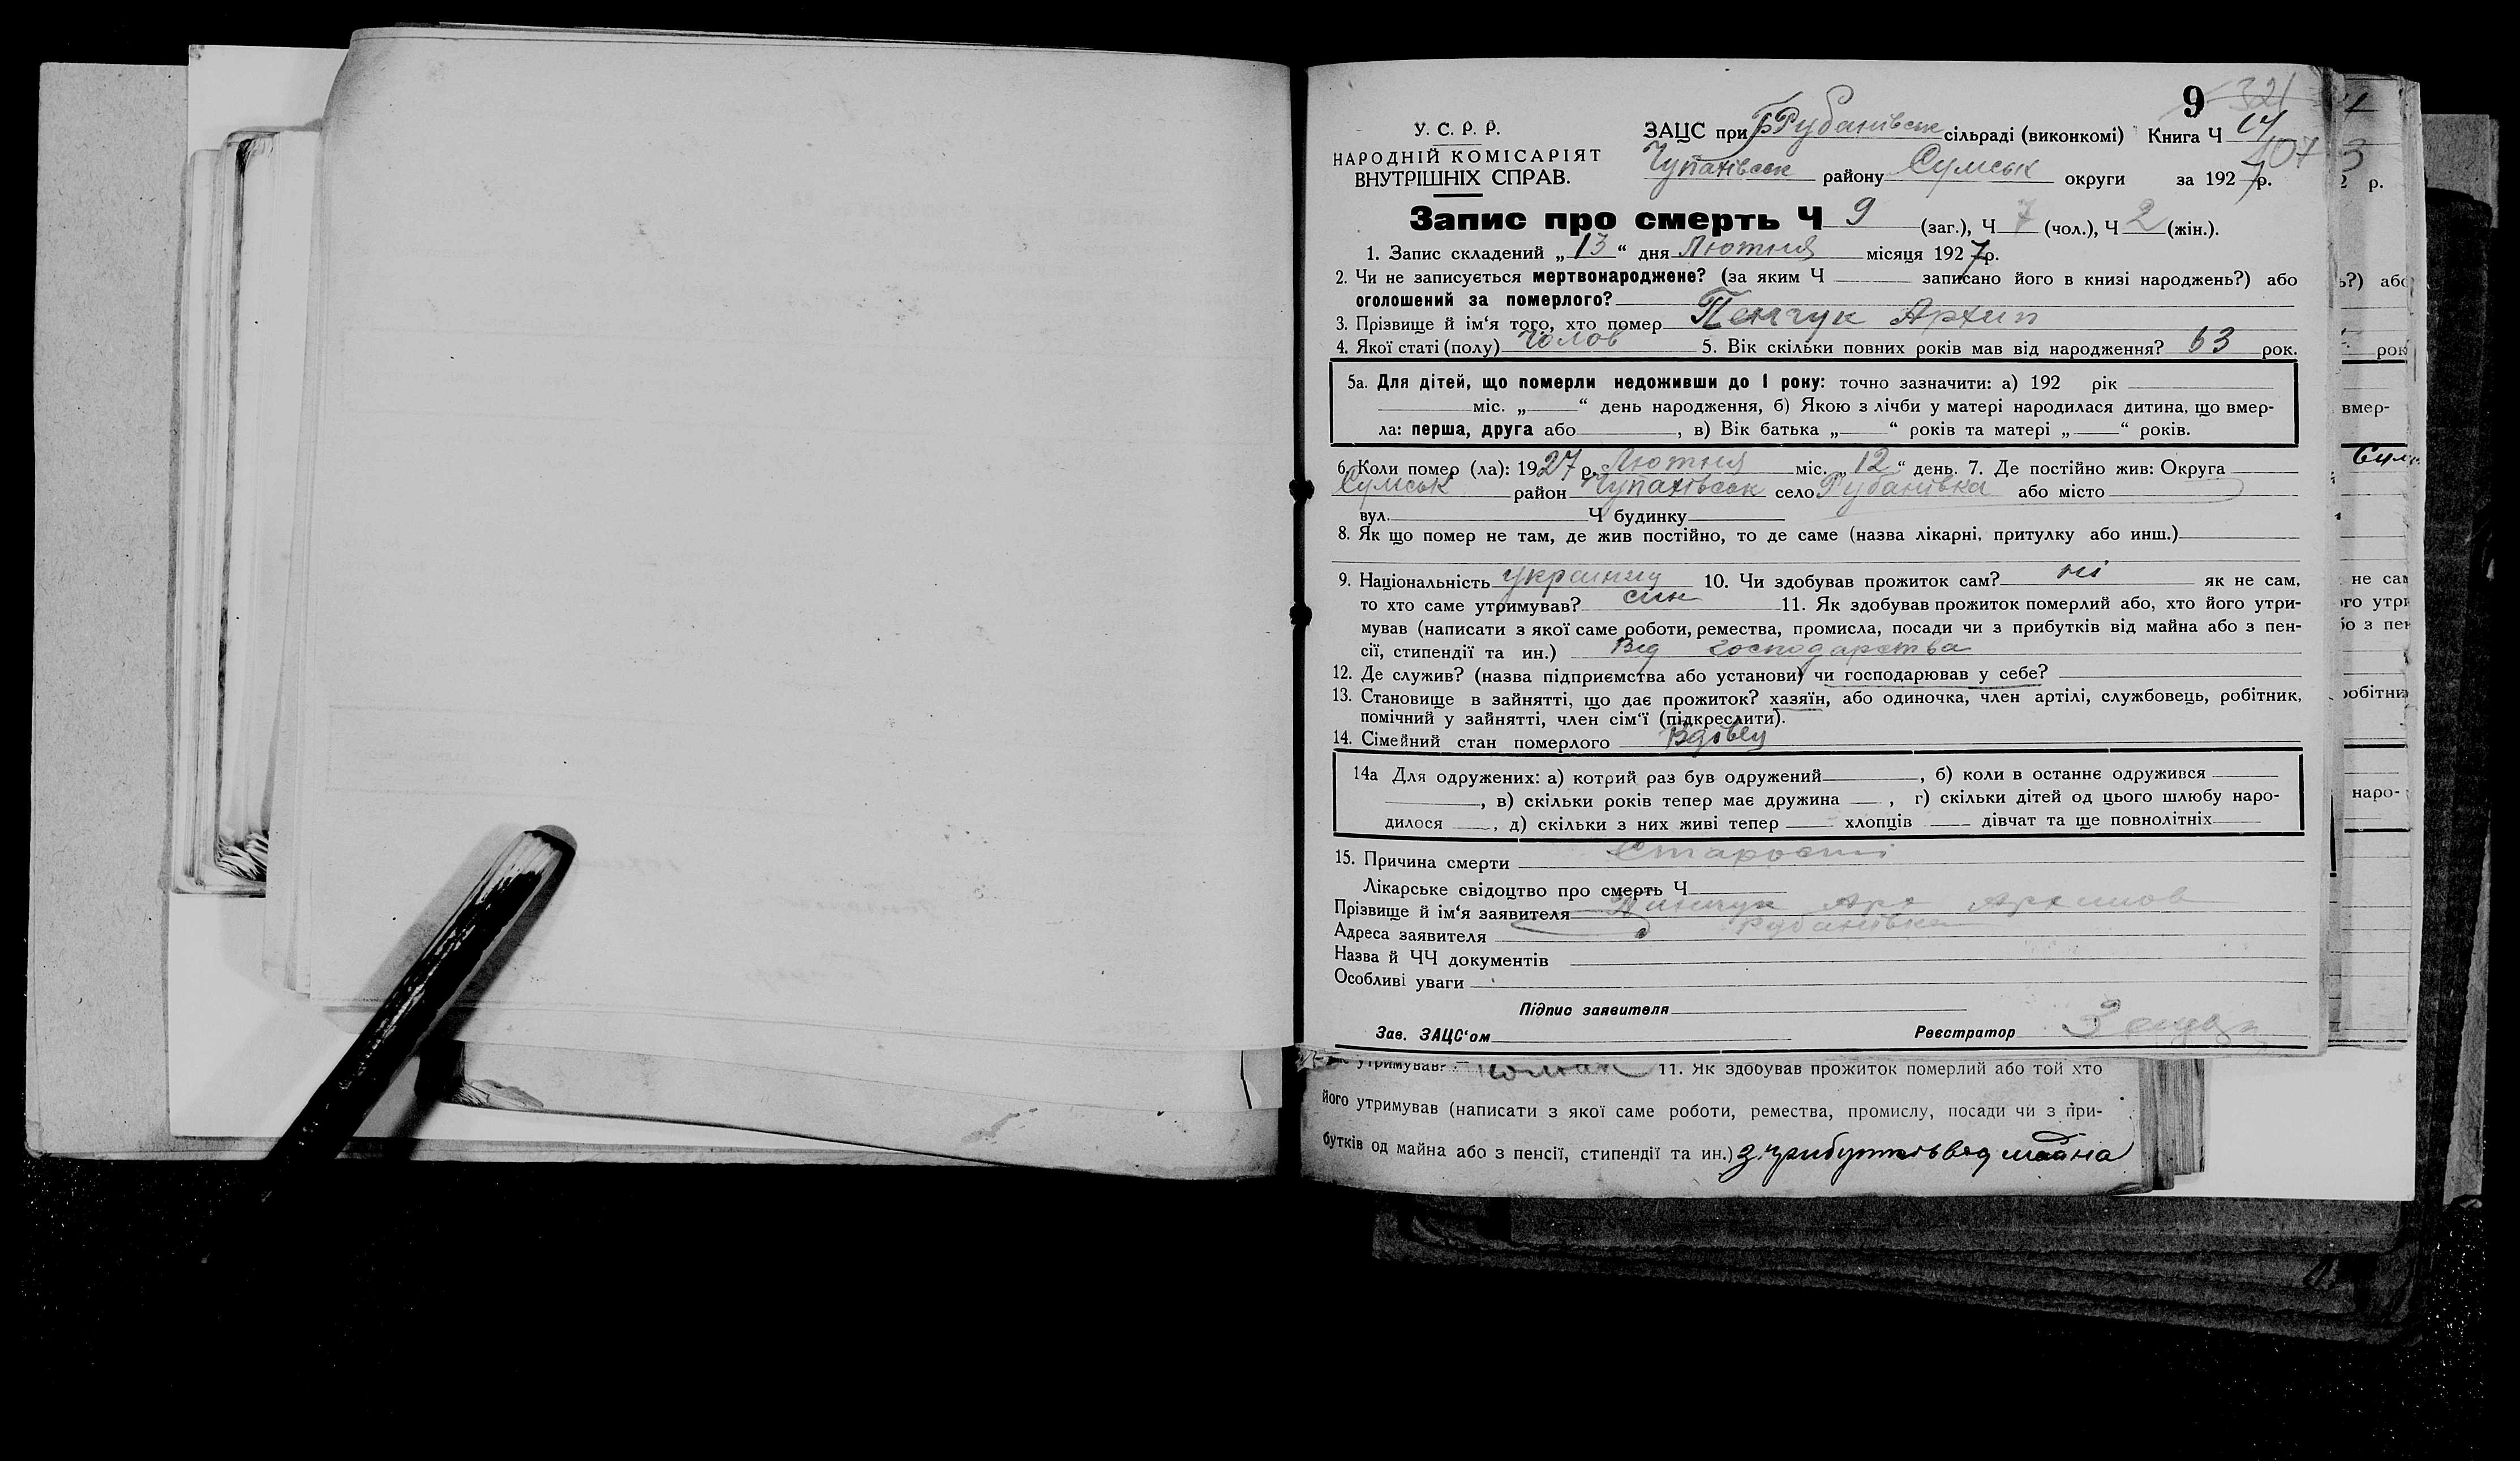 9 321
У. С. Р. Р.
НАРОДНІЙ КОМІСАРІЯТ
ВНУТРІШНІХ СПРАВ.
ЗАЦС при Б Рубанівськ сільраді (виконкомі) Книга Ч
407
Чупахівськ району Сумськ округи за 1927 р.
Запис про смерть Ч 9 (заг.), Ч 7 (чол.), Ч 2 (жін.).
1. Запис складений „ 13 “ дня Лютня місяця 1927 р.
2. Чи не записується мертвонароджене? (за яким Ч записано його в книзі народжень?) або
оголошений за померлого?
3. Прізвище й ім‘я того, хто помер Пенчук Архип
4. Якої статі (полу) Чолов 5. Вік скільки повних років мав від народження? 63 рок.
5а. Для дітей, що померли недоживши до 1 року: точно зазначити: а) 192 рік
міс. „ “ день народження, б) Якою з лічби у матері народилася дитина, що вмер-
ла: перша, друга або , в) Вік батька „ “ років та матері „ “ років.
6. Коли помер (ла): 1927 р. Лютня міс. „ 12 “ день. 7. Де постійно жив: Округа
Сумськ район Чупахівськ село Рубанівка або місто
вул. Ч будинку
8. Як що помер не там, де жив постійно, то де саме (назва лікарні, притулку або инш.)
9. Національність українец 10. Чи здобував прожиток сам? ні як не сам,
то хто саме утримував? син 11. Як здобував прожиток померлий або, хто його утри-
мував (написати з якої саме роботи, ремества, промисла, посади чи з прибутків від майна або з пен-
сії, стипендії та ин.) Від господарства
12. Де служив? (назва підприємства або установи) чи господарював у себе?
13. Становище в зайнятті, що дає прожиток? хазяїн, або одиночка, член артілі, службовець, робітник,
помічний у зайнятті, член сім‘ї (підкреслити).
14. Сімейний стан померлого Вдівец
14а Для одружених: а) котрий раз був одружений , б) коли в останнє одружився
, в) скільки років тепер має дружина , г) скільки дітей од цього шлюбу наро-
дилося , д) скільки з них живі тепер хлопців дівчат та ще повнолітніх
15. Причина смерти Старости
Лікарське свідоцтво про смерть Ч
Прізвище й ім‘я заявителя Пинчук Архипов
Адреса заявителя Рубанівка
Назва й ЧЧ документів
Особливі уваги
Підпис заявителя
Зав. ЗАЦС‘ом Реєстратор
утримував? 11. Як здобував прожиток померлий або той хто
його утримував (написати з якої саме роботи, ремества, промислу, посади чи з при-
бутків од майна або з пенсії, стипендії та ин.) з прибутків від майна
3
2 р.
ь?) або
рок
вмер-
Сум
не сам
го утри
бо з пен
робітник
наро-